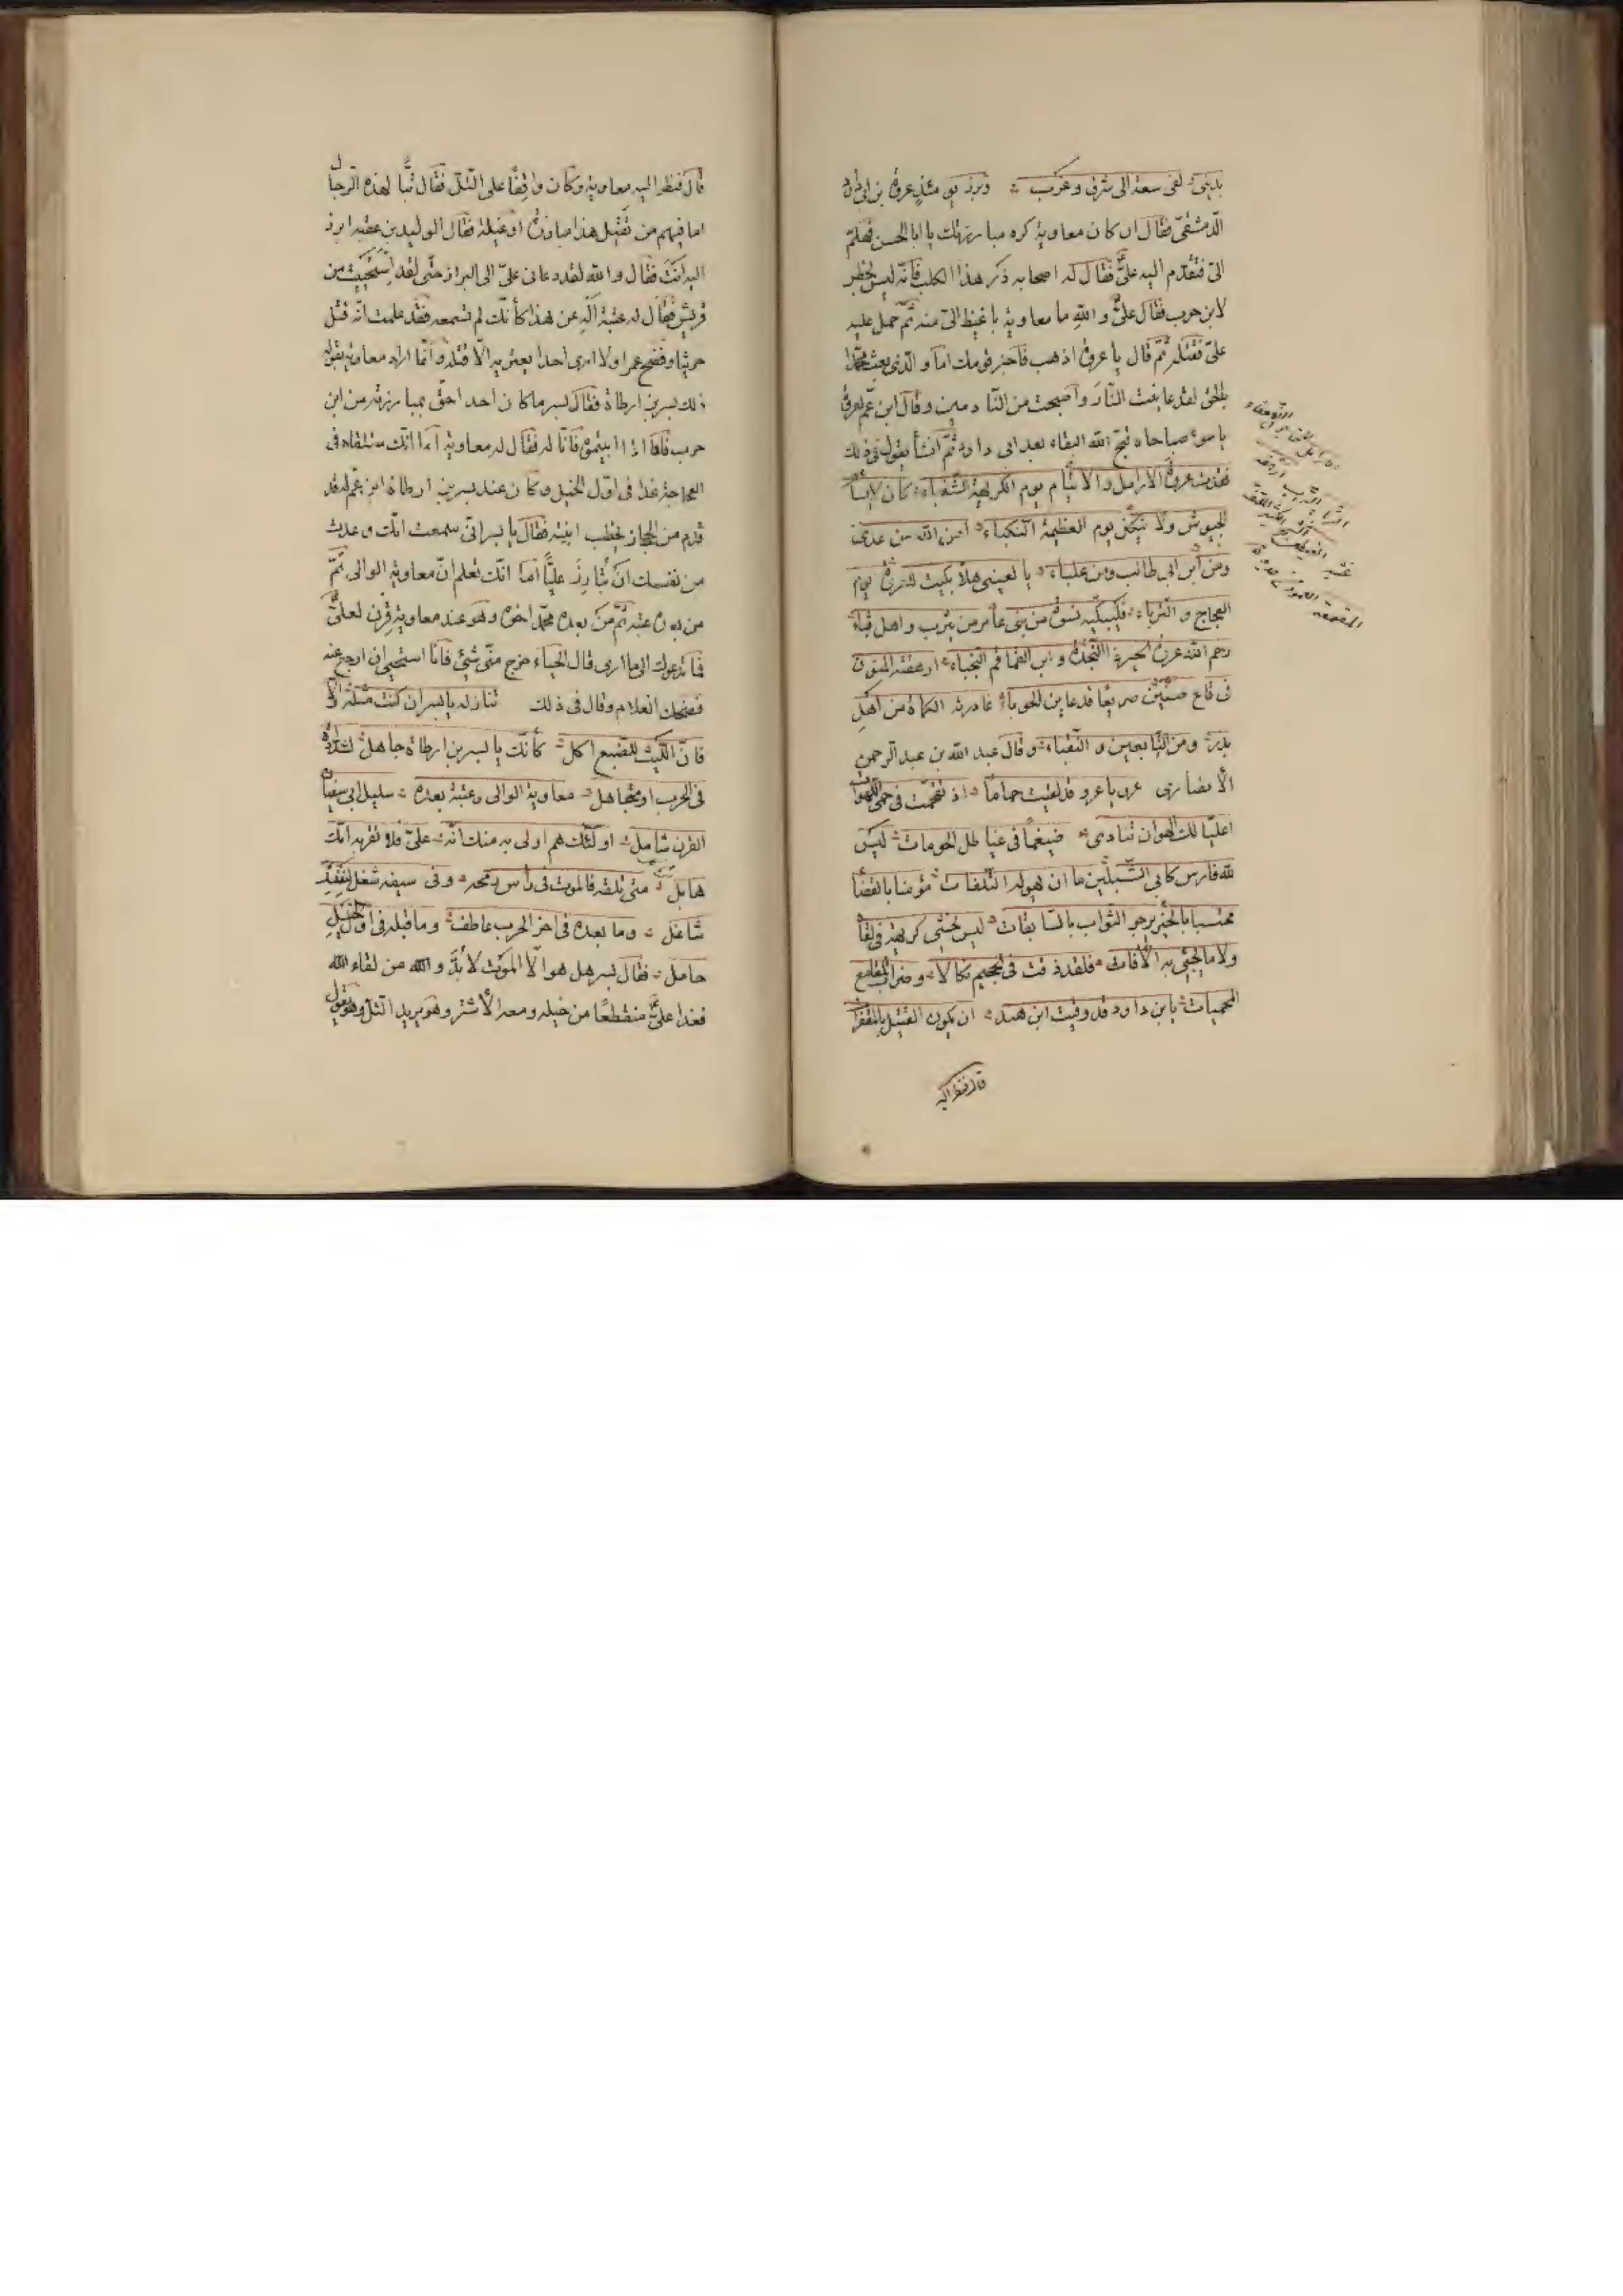 بدينى لفى سعة الى شرق وغرب وبرز يومئذ عروة بن داود
الدّمشقى فقال ان كان معاوية كره مبارزتك يا ابا الحسن فهلمّ
الىّ فتقدّم اليه علىّ فقال له اصحابه ذر هذا الكلب فانّه ليس بخطر
لابن حرب فقال علىّ والله ما معاوية باغيظ الىّ منه ثمّ حمل عليه
علىّ فقتله ثمّ قال يا عروة اذهب فاخبر قومك اما والّذى بعث محمّدا
بالحق لقد عاينت النّار واصبحت من النّادمين وقال ابن عم لعروة
يا سوء صباحاه قبح الله البقاء بعد ابى داود ثمّ انشأ يقول فى ذلك
فقدت عروة الارامل والايتام يوم الكريهة الشّنعاء كان لا
الجيوش ولا ينكل يوم العظيمة النكباء امن الله من عدى
ومن ابن ابى طالب ومن علياء يا لعينى هلّا بكيت لعروة يوم
العجاج والترباء فليبكّيه نسوة من بنى عامر من يثرب واهل قباء
رحم الله عروة الخير ذا النّجدة وابن القماقم النجباء ارهقته المنون
فى قاع صفّين صريعًا قد غابن الحوباء غادرته الكماة من اهل
بدر ومن التّابعين والنّقباء وقال عبد الله بن عبد الرحمن
الأنصارى عرو يا عرو قد لقيت حمامًا اذ تقحّمت فى حمى اللهوات
اعليّا لك الهوان تنادى ضيغمًا فى عياطل الحومات ليس
لله فارس كابى الشّبلين ما ان يهوله التّلفات مؤمنا بالقضا
محتسبا بالخير يرجو الثّواب بالسّابقات ليس يخشى كريهة فى لقا
ولا ما يجئى به الآفات فلقد ذقت فى الجحيم نكالا وضراب المقامع
المحميات يابن داود قد وقيت ابن هند ان يكون القتيل بالمقفرا
قال فنظر اليه
قال فنظر اليه معاوية وكان واقفًا على التّل فقال تبًّا لهذه الرّجال
اما فيهم من يقتل هذا مبارزةً او غيلة فقال الوليد بن عقبة ابرز
اليه انت فقال والله لقد دعانى علىّ الى البراز حتّى لقد استحييت من
قريش فقال له عتبة اله عن هذا كأنّك لم تسمعه فقد علمت انّه قتل
حريثا وفضح عمرا ولا ارى احدا يعرّض به الّا قتله وانّما اراد معاوية بقوله
ذلك بسر بن ارطاة فقال بسر ما كان احد احقّ بمبارزته من ابن
حرب فامّا اذا ابيتموه فانا له فقال له معاوية اما انّك ستلقاه فى
العجاجة غدا فى اوّل الخيل وكان عند بسر بن ارطاة ابن عم له قد
قدم من الحجاز يخطب ابنته فقال يا بسر انّى سمعت انّك وعدت
من نفسك ان تبارز عليًّا اما انّك تعلم انّ معاوية الوالى ثمّ
من بعده عتبة ثمّ من بعده محمّد اخوه وهو عند معاوية قرن لعلىّ
فما يدعوك الى ما ارى قال الحياء خرج منّى شئ فانا استحيى ان ارجع عنه
فضحك الغلام وقال فى ذلك تنازله يا بسر ان كنت مثله والّا
فانّ اللّيث للضبع اكل كأنّك يا بسر بن ارطاة جاهل لشدّاته
فى الحرب او متجاهل معاوية الوالى وعتبة بعده سليل ابى سفيان
القرن شامل اولئك هم اولى به منك انّه علىّ فلا تقربه امّك
هابل متى تلقه فالموت فى رأس رمحه وفى سيفه شغل لنفسك
شاغل وما بعده فى اخر الحرب عاطف وما قبله فى اوّل الخيل
حامل فقال بسر هل هو الّا الموت لا بدّ والله من لقاء الله
فغدا علىّ منقطعًا من خيله ومعه الأشتر وهو يريد التلّ وهو يقول